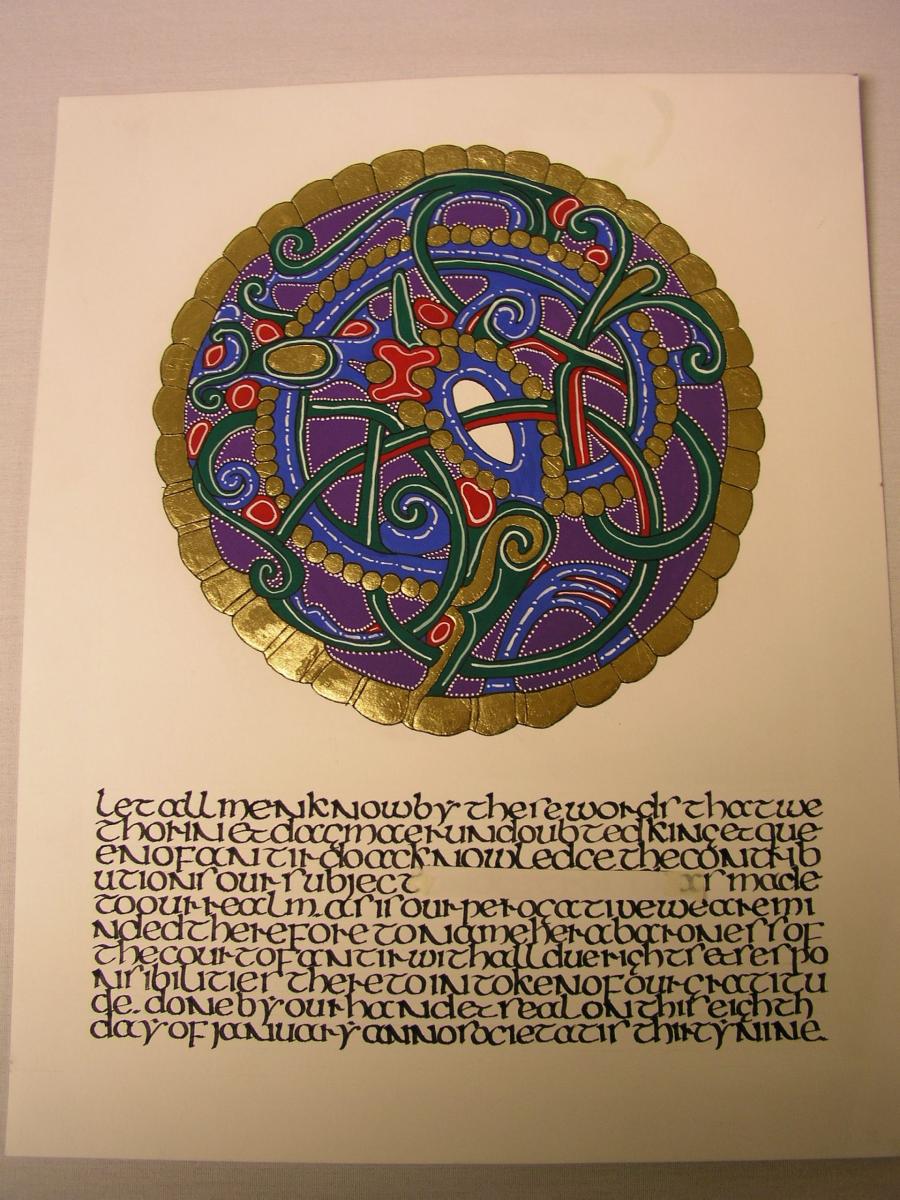 let all men know by these words that we
thorin et dagmaer undoubted king et que
en of an tir do acknowledge the contrib
utions our subject has made
to our realm. as is our perogative we are mi
nded therefore to name her a baroness of
the court of an tir with all due rights et respo
nsibilities thereto in token of our gratitu
de. done by our hand et seal on this eighth
day of january anno societatis thirty nine.